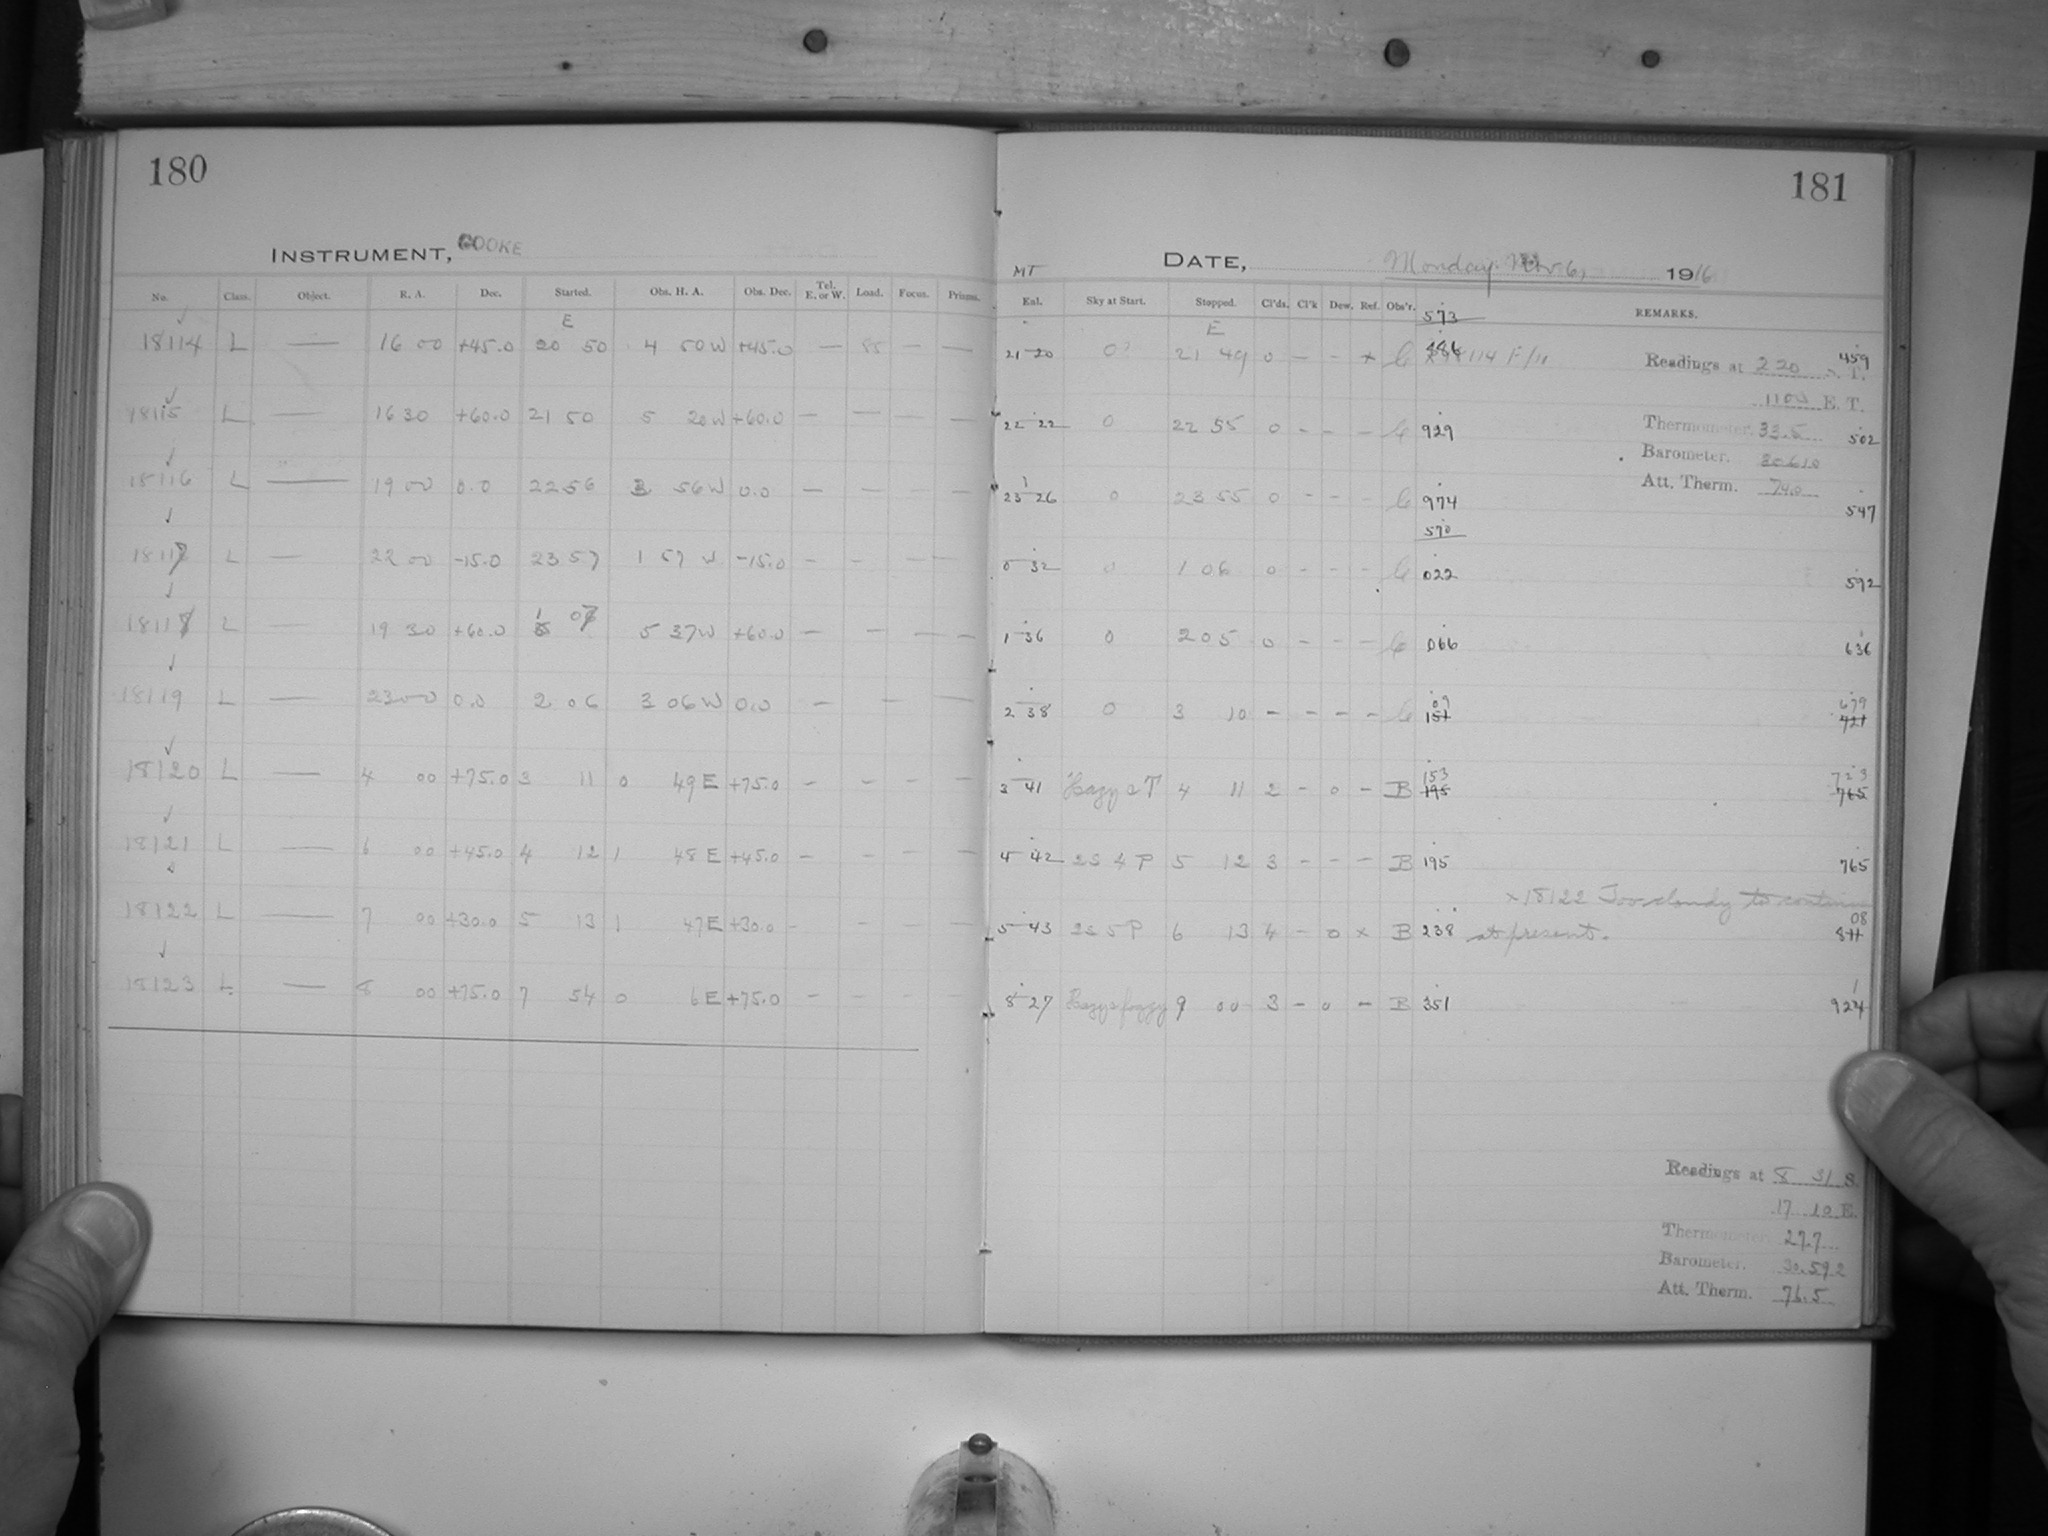 180
INSTRUMENT, COOKE
No. Class. Object. R. A. Dec. Started. Obs. H. A. Obs. Dec. Tel. E. or W. Load. Focus. Prisms.
E
18114 L — 16 00 +45.0 20 50 4 50 W +45.0 — 85 — —
18115 L — 16 30 +60.0 21 50 5 20 W +60.0 — — — —
18116 L — 19 00 0.0 22 56 3 56 W 0.0 — — — —
18117 L — 22 00 -15.0 23 57 1 57 W -15.0 — — — —
18118 L — 19 30 +60.0 1 07 5 37 W +60.0 — — — —
18119 L — 23 00 0.0 2 06 3 06 W 0.0 — — —
18120 L — 4 00 +75.0 3 11 0 49 E +75.0 — — — —
18121 L — 6 00 +45.0 4 12 1 48 E +45.0 — — — —
18122 L — 7 00 +30.0 5 13 1 47 E +30.0 — — — —
18123 L — 8 00 +75.0 7 54 0 6 E +75.0 — — — —
181
DATE, Monday Nov. 6, 1916
MT
Enl. Sky at Start. Stopped. Cl'ds. Cl'k Dew. Ref. Obs'r. REMARKS.
573
E
21 20 0? 21 49 0 - - x C 886 x 18114 F/11 459
Readings at 2 20 S. T.
11 00 E. T.
22 22 0 22 55 0 - - - C 929 502
Thermometer. 33.5
Barometer. 30.610
Att. Therm. 74.0
23 26 0 23 55 0 - - - C 974 547
570
0 32 0 1 06 0 - - - C 022 592
1 36 0 2 05 0 - - - C 066 636
2 38 0 3 10 - - - - C 109 151 679 721
3 41 Hazy 2 T 4 11 2 - 0 - B 153 195 723 765
4 42 2S 4 P 5 12 3 - - - B 195 765
x 18122 Too cloudy to continue
5 43 2S 5 P 6 13 4 - 0 x B 238 at present. 808 811
8 27 Hazy & foggy 9 00 3 - 0 - B 351 924
Readings at 8 31 S.
17 10 E.
Thermometer 27.7
Barometer. 30.592
Att. Therm. 76.5